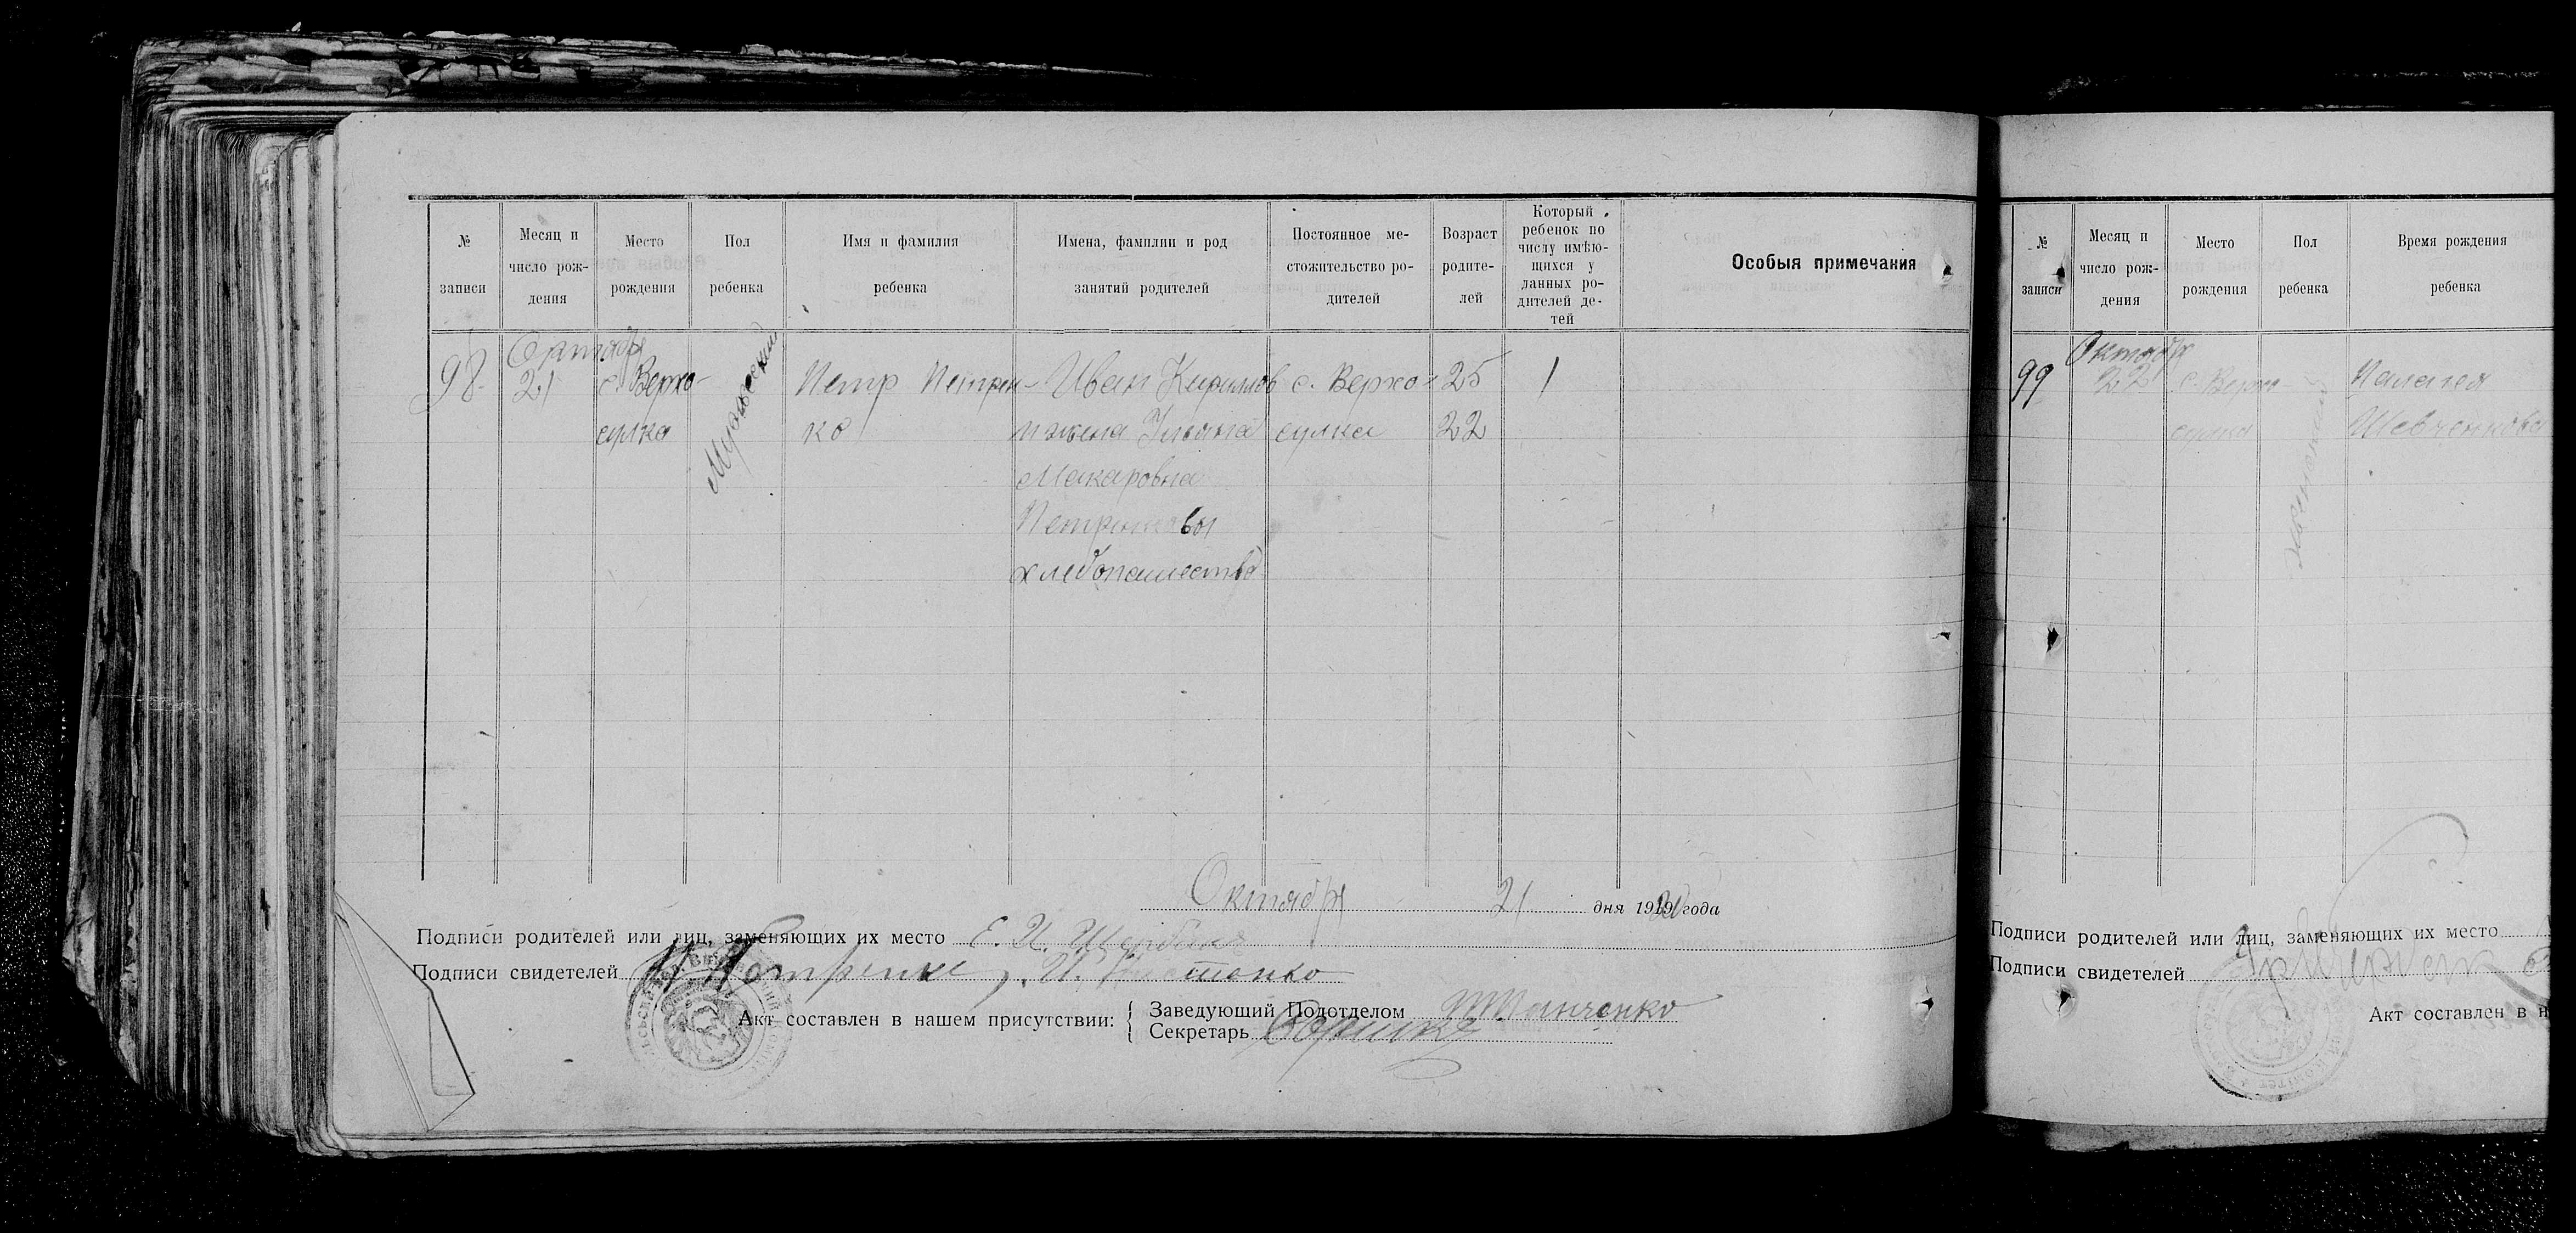 № записи
Месяц и число рождения
Место рождения
Пол ребенка
Имя и фамилия ребенка
Имена, фамилии и род занятий родителей
Постоянное местожительство родителей
Возраст родителей
Который ребенок по числу имѣющихся у данных родителей детей
Особыя примечания
98
Октября
21
с. Верхо-
сулка
Мужеский
Петр Петрен-
ко
Иван Кириллов
и жена Ульяна
Макаровна
Петренковы
хлебопашество
с. Верхо-
сулка
25
22
1
Октября 21 дня 1920 года
Подписи родителей или лиц, заменяющих их место Е. И. Щербина
Подписи свидетелей Петренко, И.
Акт составлен в нашем присутствии:
Заведующий Подотделом Панченко
Секретарь
№ записи
Месяц и число рождения
Место рождения
Пол ребенка
Время рождения ребенка
99
Октября
22
с. Верхо-
сулка
женский
Палагея
Шевченкова
Подписи родителей или лиц, заменяющих их место
Подписи свидетелей
Акт составлен в н